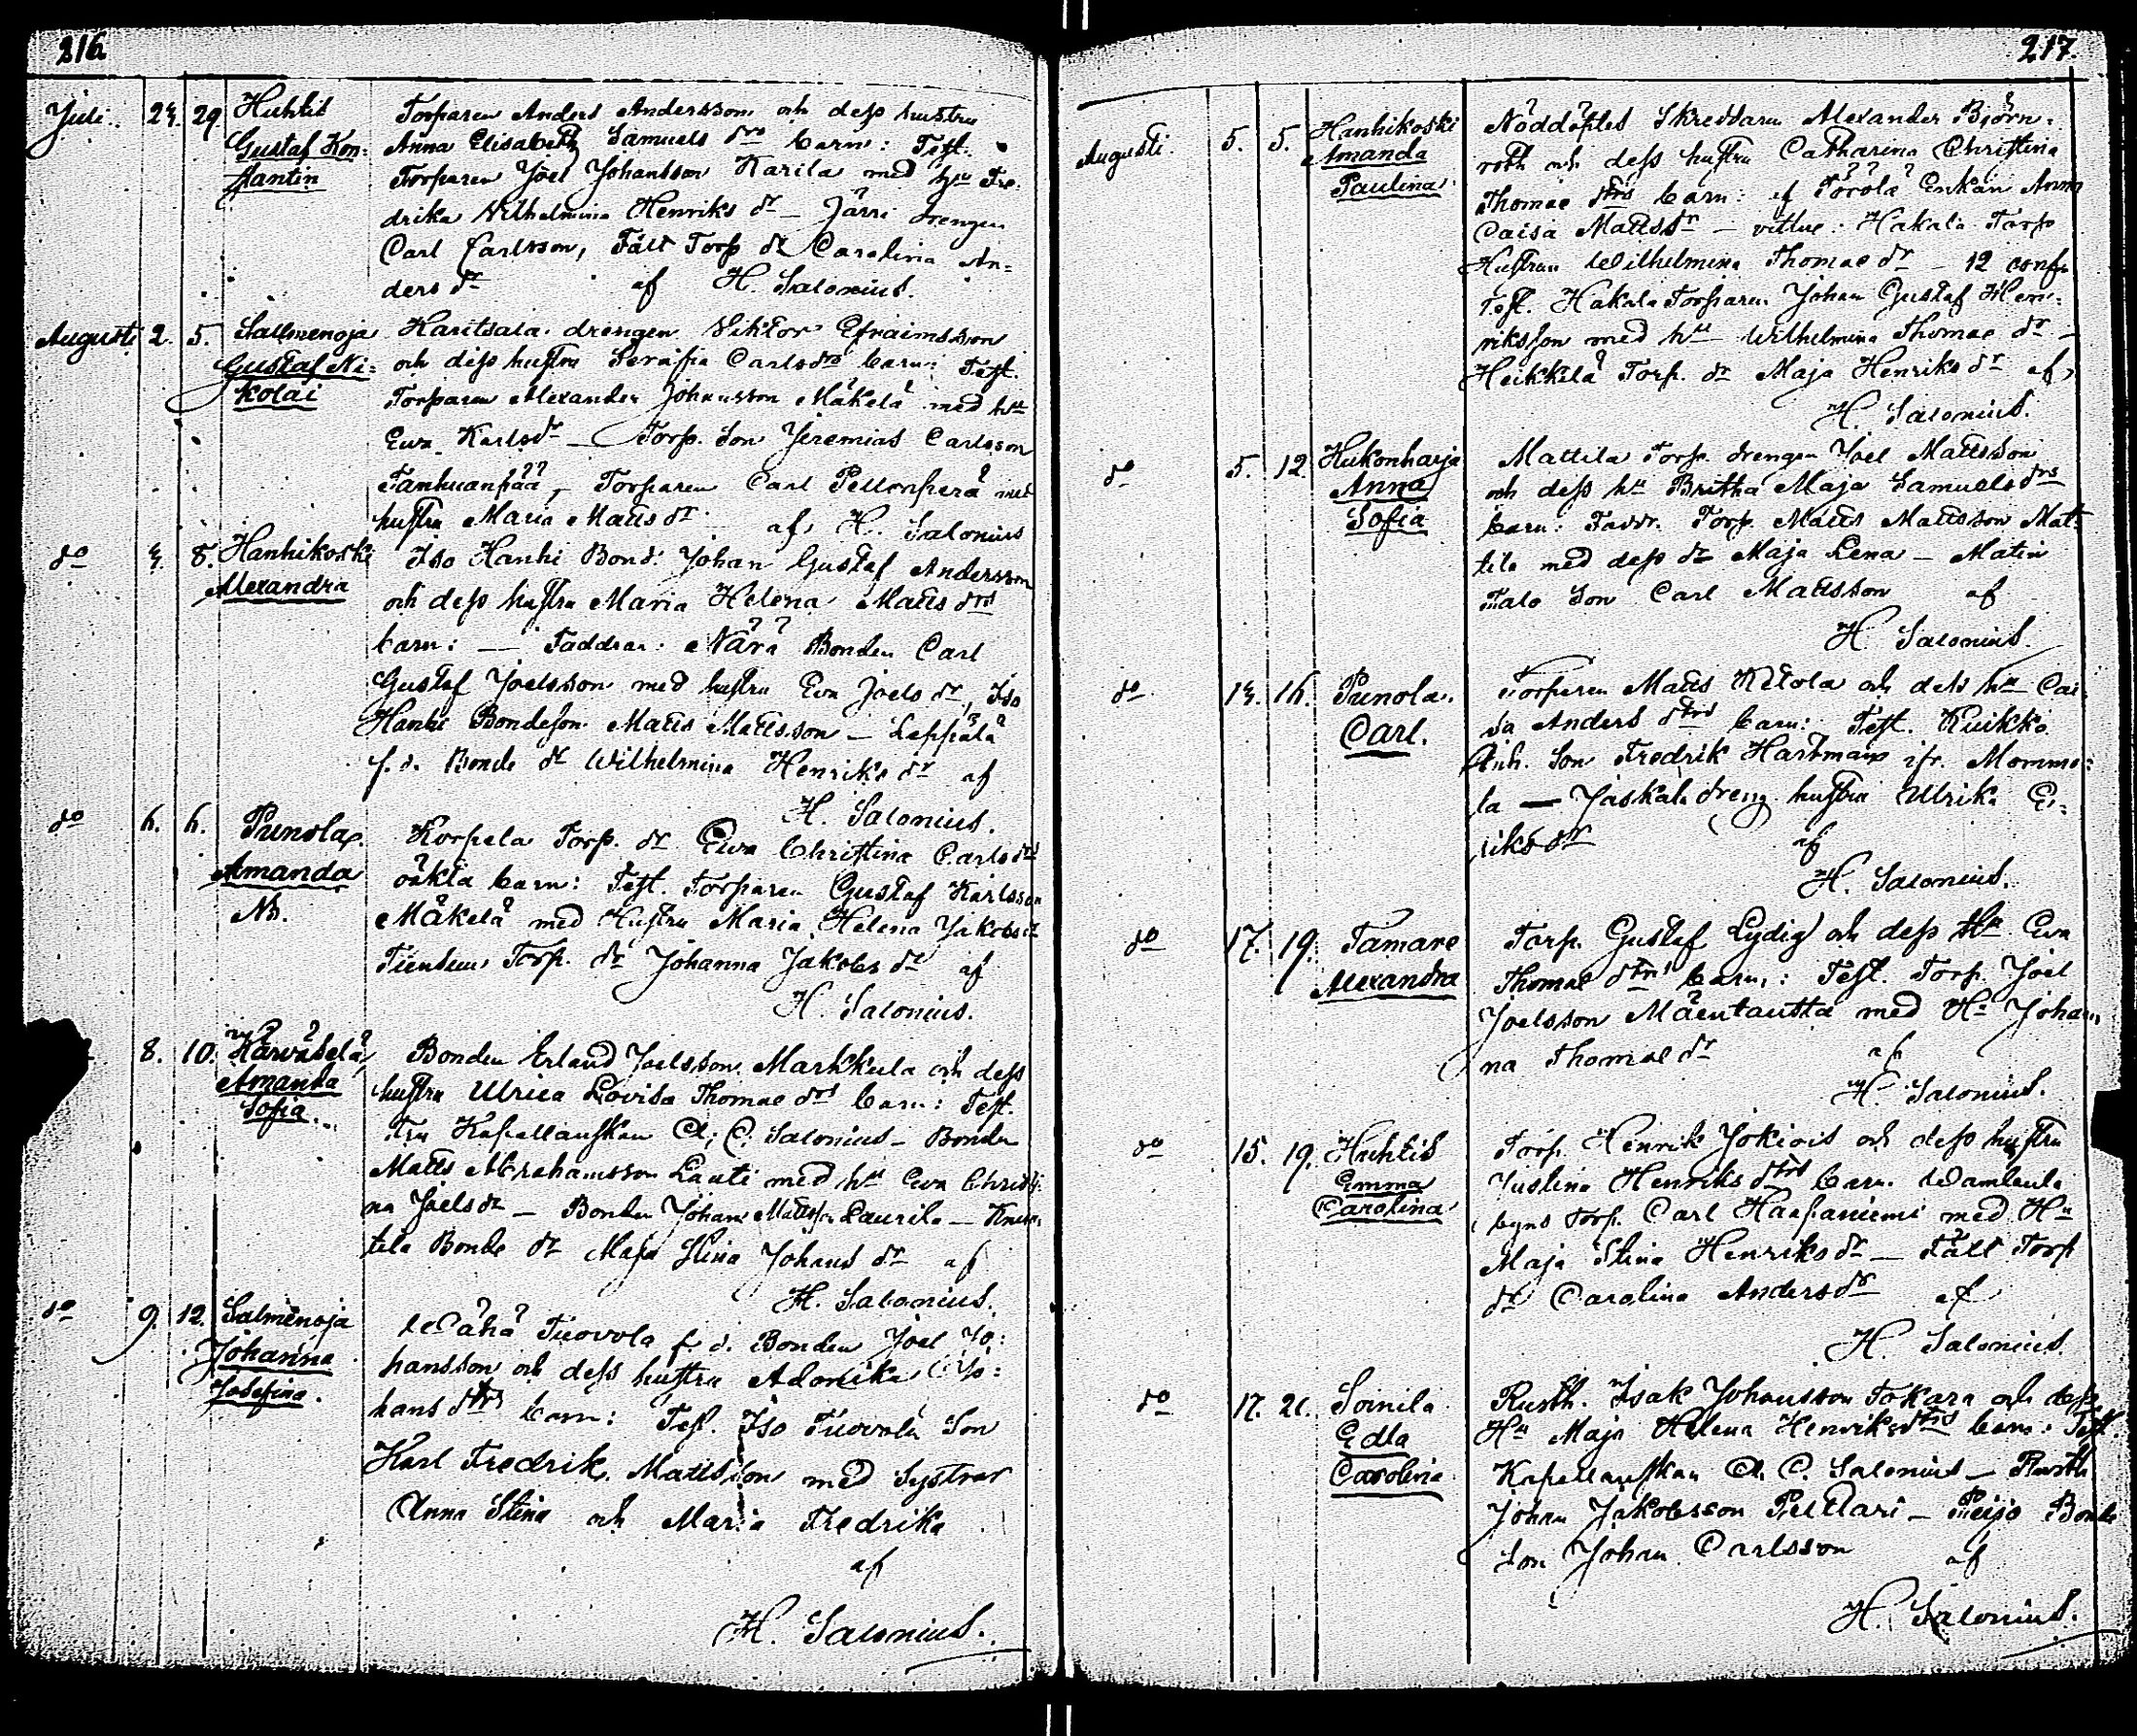 216
Juli 24. 29. Huhtis
Gustaf Kon=
stantin
Torparen Anders Andersson och dess hustru
Anna Elisabeth Samuels drs barn: Test.
Torparen Joel Johansson Karila med hu Fre=
drika Wilhelmina Henriks dr — Järri drengen
Carl Carlsson, Fält Torp dr Carolina An=
ders dr af H. Salonius.
Augusti 2. 5. Sallmenoja
Gustaf Ni=
kolai
Karitsala drengen Viktor Efraimsson
och dess hustru Serafia Carls drs barn: Test.
Torparen Alexander Johansson Mäkelä med hu
Ewa Karls dr — Torp. Son Jeremias Carlsson
Tanhuanpää, — Torparen Carl Pellonperä med
hustru Maria Matts dr af H. Salonius
do 4. 8. Hanhikoski
Alexandra
Iso Hanhi Bond. Johan Gustaf Andersson
och dess hustru Maria Helena Matts drs
barn: — Faddrar: Närä Bonden Carl
Gustaf Joelsson med hustru Eva Joels dr, Iso
Hanhi Bondeson Matts Mattsson — Leppälä
f.d. Bonde dr Wilhelmina Henriks dr af
H. Salonius.
do 6. 6. Punola
Amanda
Korpela Torp. dr Ewa Christina Carls drs
oäkta barn: Test. Torparen Gustaf Karlsson
Mäkelä med Hustru Maria Helena Jakobs dr
Torp. dr Johanna Jakobs dr af
H. Salonius.
8. 10. Härväselä
Amanda
Sofia.
Bonden Erland Joelsson Markkula och dess
hustru Ulrica Lovisa Thomae drs barn: Test.
Fru Kapellanskan A. C. Salonius — Bonden
Matts Abrahamsson Lauti med hu Ewa Christi=
na Joels dr — Bonden Johan Mattss. Laurila —
Bonde dr Maja Stina Johans dr af
H. Salonius.
do 9. 12. Salmenoja
Johanna
Josefina.
Wähä Tuovola f.d. Bonden Joel Jo=
hansson och dess hustru Adonika Jo=
hans drs barn: Test. Iso Tuovola Son
Karl Fredrik Mattsson med Systrar
Anna Stina och Maria Fredrika
af
H. Salonius.
217.
Augusti. 5. 5. Hanhikoski
Amanda
Paulina
Nöddöptes Skreddaren Alexander Björn=
roth och dess hustru Catharina Christina
Thomae drs barn: af Törölä Enkan Anna
Caisa Matts dr — vittne: Hakala Torp
Hustrun Wilhelmina Thomae dr — 12 conf.
Test. Hakala Torparen Johan Gustaf Hen=
riksson med hu Wilhelmina Thomae dr —
Heikkilä Torp. dr Maja Henriks dr af
H. Salonius.
do 5. 12. Hukonharja
Anna
Sofia
Mattila Torp. drengen Joel Mattsson
och dess hu Britha Maja Samuels drs
barn: Faddr. Torp. Matts Mattsson Mat=
tila med dess dr Maja Lena — Matin
Talo Son Carl Mattsson af
H. Salonius.
do 14. 16. Punola.
Carl.
Torparen Matts Ketola och dess hu Cai=
sa Anders drs barn: Test. Kuikko
Inh. Son Fredrik Hartman ifr. Momme=
la — Jaskala dreng hustru Ulrika E=
riks dr af
H. Salonius.
do 17. 19. Tamare
Alexandra
Torp. Gustaf Lydig och dess Hu Ewa
Thomae drs barn: Test. Torp. Joel
Joelsson Mäentausta med Hu Johan=
na Thomae dr af
H. Salonius.
do 15. 19. Huhtis
Emma
Carolina
Torp. Henrik Jokiois och dess hustru
Justina Henriks drs barn. Wambula
byns Torp. Carl Haapaniemi med Hu
Maja Stina Henriks dr — Fält Torp
dr Carolina Anders dr af
H. Salonius.
do 17. 21. Soinila
Edla
Carolina
Rusth. Isak Johansson Tokara och dess
Hu Maja Helena Henriks drs barn: Test.
Kapellanskan A. C. Salonius — Rusth.
Johan Jakobsson Pelttari — Peijo Bonde
Son Johan Carlsson af
H. Salonius.